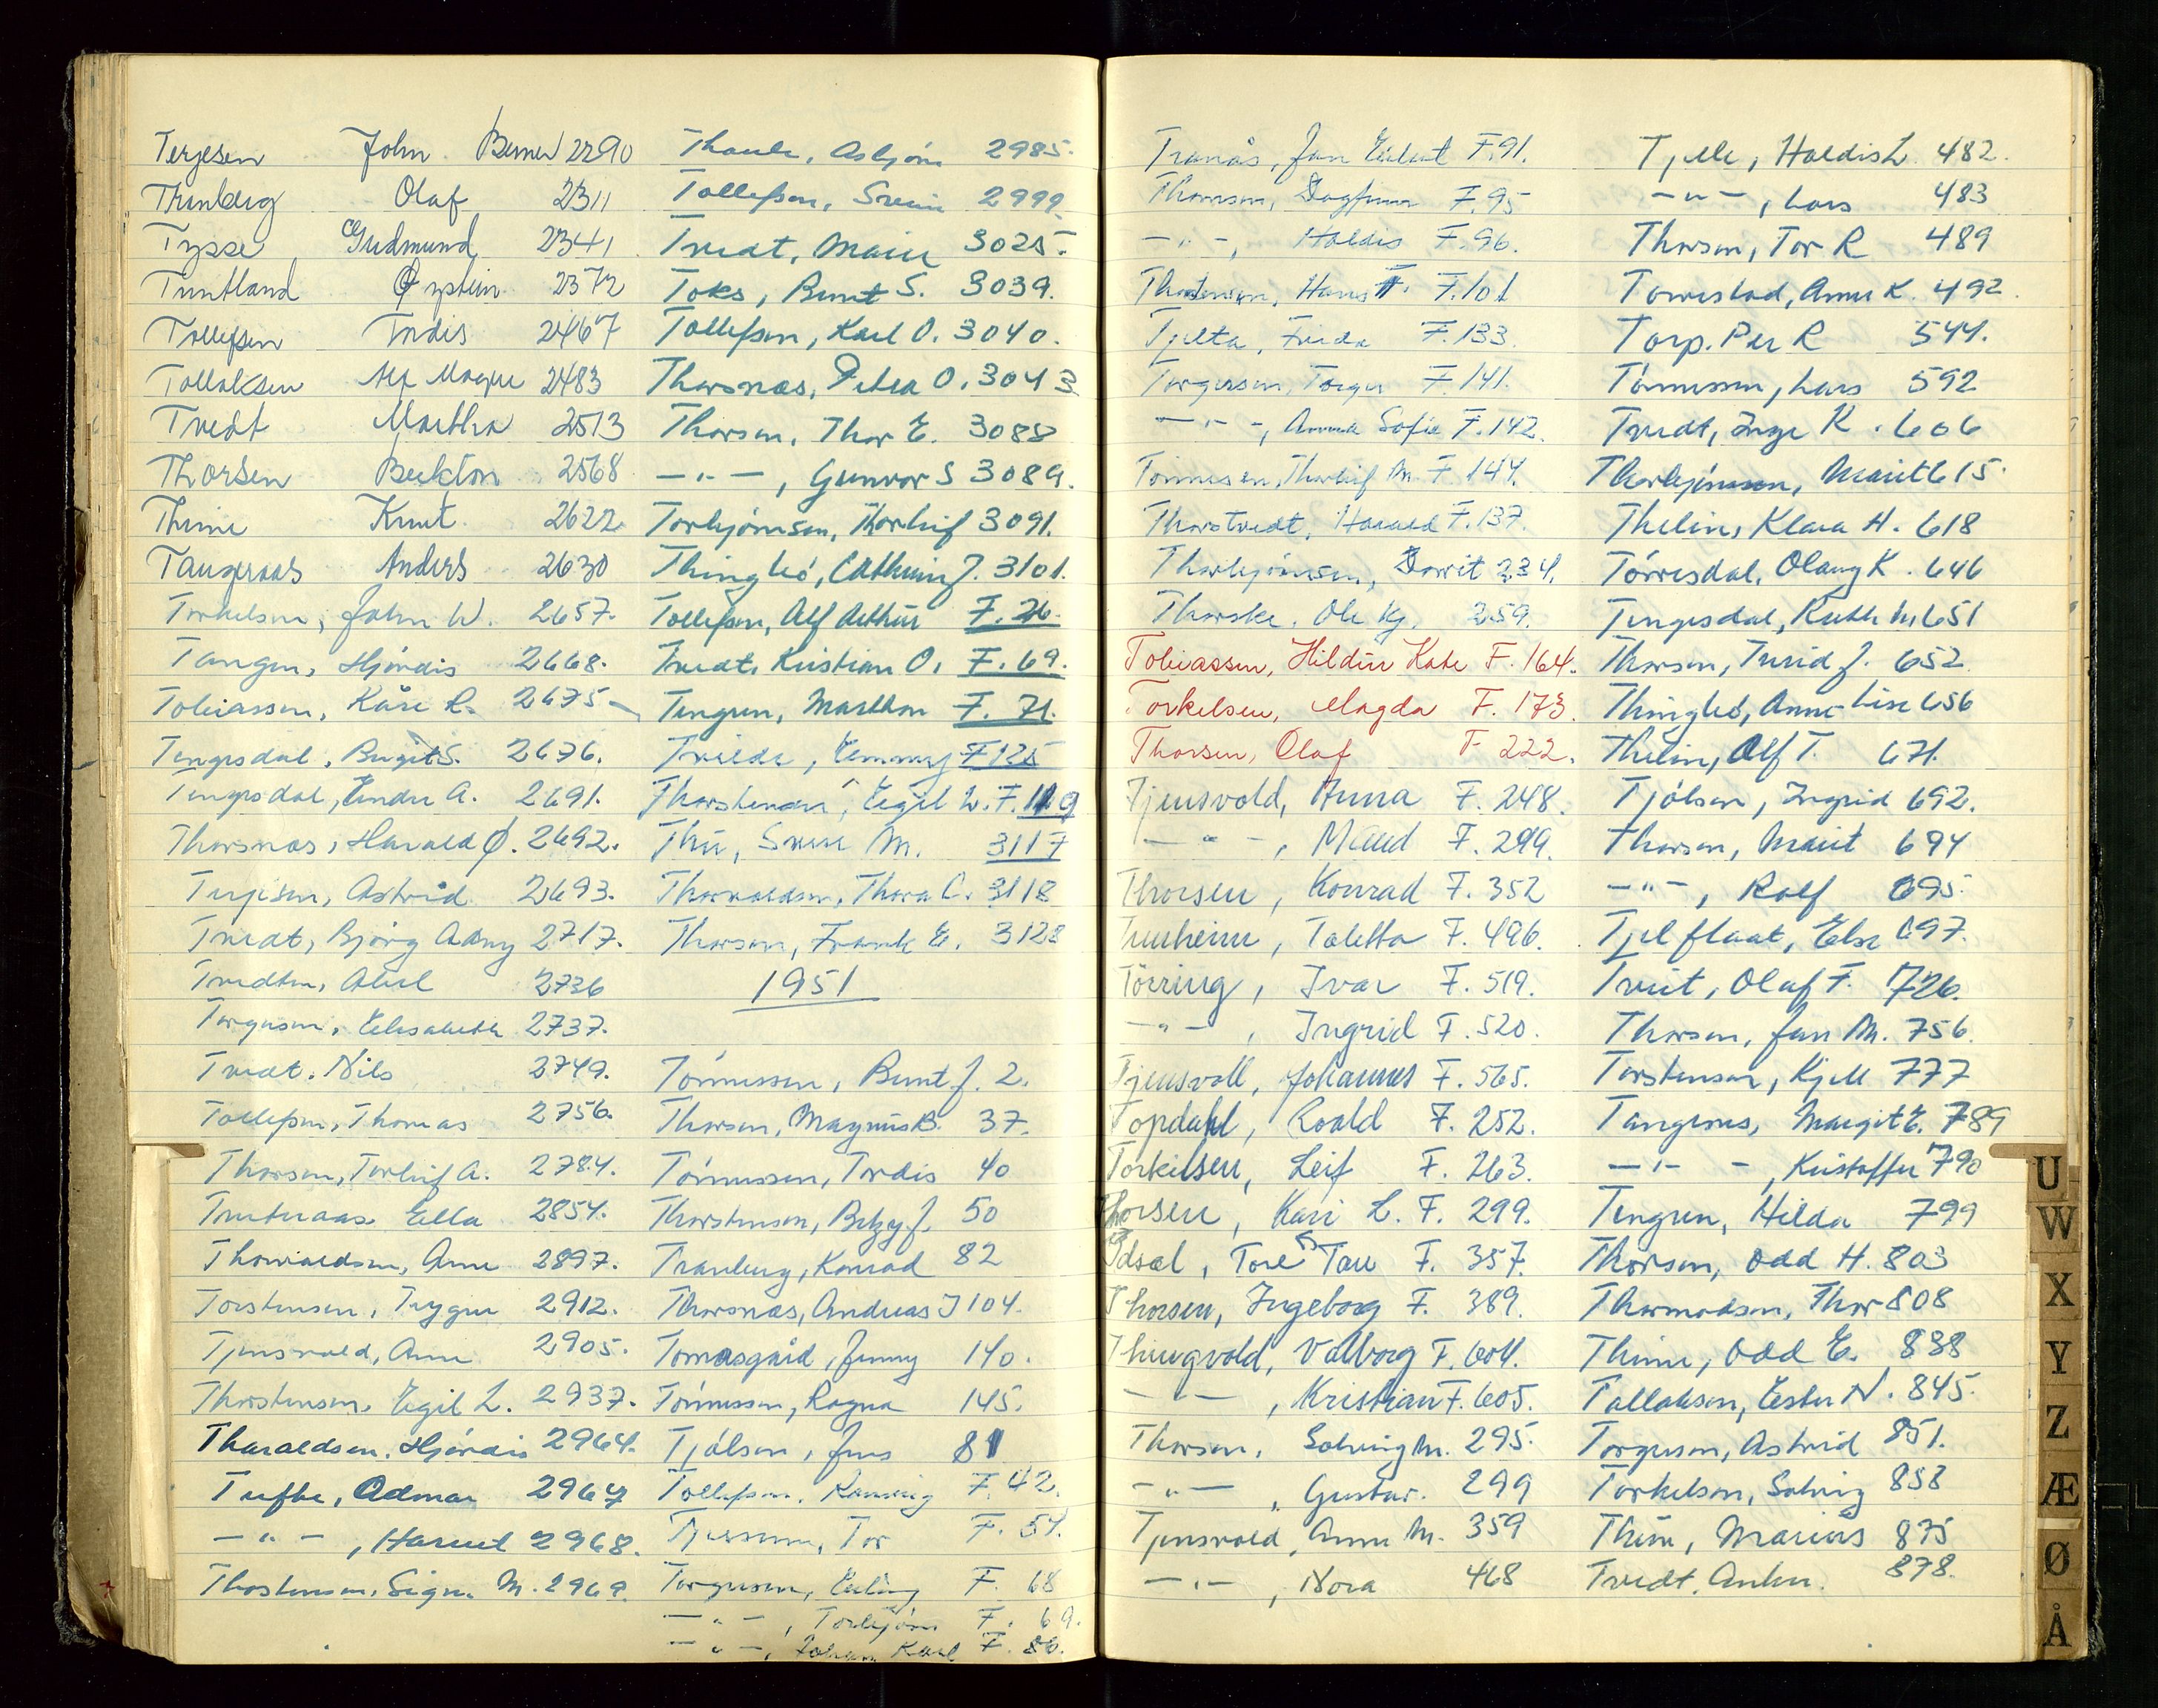 Terjesen John Berner 2290
Thunberg Olaf 2311
Tysse Gudmund 2341
Tuntland Øystein 2372
Tollefsen Tordis 2467
Tollaksen Alf Magne 2483
Tvedt Martha 2513
Thorsen Beckton 2568
Thime Knut 2622
Tangeraas Anders 2630
Torkelsen, John W. 2657.
Tangen, Hjördis 2668.
Tobiassen, Kåre R. 2675
Tengesdal, Birgit S. 2676.
Tengesdal, Endre A. 2691.
Thorsnæs, Harald Ø. 2692.
Terjesen, Astrid 2693.
Tvedt, Bjørg Adny 2717.
Tvedten, Abel 2736
Torgersen, Elisabeth 2737.
Tvedt, Nils 2749.
Tollefsen, Thomas 2756.
Thorsen, Torleif A. 2784.
Tveteraas Ella 2854.
Thorvaldsen, Anne 2897.
Torstensen, Trygve 2912.
Tjensvold, Anne 2905.
Thorstensen, Egil L. 2937.
Tharaldsen, Hjördis 2964.
Tufte, Odmar 2967
— " — , Harriet 2968.
Thorstensen, Signe M. 2969.
Asbjörn 2985.
Tollefsen, Svein 2999.
Tvedt, Marie 3025.
Toks, Bernt S. 3039.
Tollefsen, Karl O. 3040.
Thorsnæs, Petra O. 3043
Thorsen, Thor E. 3088
— " — , Gunvor S 3089.
Torbjörnsen, Thorleif 3091.
Thingbö, Cathrine J. 3101.
Tollefsen, Alf Arthur F. 26.
Tvedt, Kristian O. F. 69.
Tengren, Marthon F. 71.
Tveide, Emmy F 125
Thorstensen, Egil L. F. 119
Thu, Svein M. 3117
Thorvaldsen, Thora C. 3118
Thorsen, Frank E. 3128
1951
Tönnessen, Bernt J. 2.
Thorsen, Magnus B. 37.
Tönnessen, Tordis 40
Thorstensen, Betzy J. 50
Tranberg, Konrad 82
Thorsnæs, Andreas J 104.
Tomasgård, Jenny 140.
Tönnessen, Ragna 145.
Tjölsen, Jens 81
Tollefsen, F. 42.
Tor F. 54.
Torgersen, Erling F. 68
— " — , Torbjörn F. 69.
— " — , Johan Karl F. 80.
Tranås, Jan Eilert F. 91.
Thomsen, Dagfinn F. 95
— " — , Haldis F. 96.
Hans F. F. 101
Tjelta, Frida F. 133.
Torgersen, Torger F. 141.
— " — , Anna Sofie F. 142.
Tönnesen, Thorleif M. F. 144.
Thorstvedt, Harald F. 137.
Thorbjörnsen, Dorrit 234.
Thorske, Ole Kj. 259.
Tobiassen, Hildur Kate F. 164.
Torkelsen, Magda F. 173.
Thorsen, Olaf F 222.
Tjensvold, Anna F. 248.
— " — , Maud F. 299.
Thorsen, Konrad F. 352
Tunheim, Taletta F. 496.
Törring, Ivar F. 519.
— " — , Ingrid F. 520.
Tjensvoll, Johannes F. 565.
Topdahl, Roald F. 252.
Torkilsen, Leif F. 263.
Thorsen, Kari L. F. 299.
Idsal, Tore Tau F. 357.
Thorsen, Ingeborg F. 389.
Thingvold, Valborg F. 604.
— — , Kristian F. 605.
Thorsen, Solveig M. 295.
— " — , Gustav. 299
Tjensvold, Anne M. 359
— " — , Nora 468
Tjelle, Haldis L. 482.
— " — , Lars 483
Thorsen, Tor R 489
Torrestad, Anne K. 492.
Torp. Per R 544.
Tönnessen, Lars 592
Tvedt, Inge K. 606
Thorbjörnsen, Marit 615.
Thelin, Klara H. 618
Törresdal, Olaug K. 646
Tengesdal, Ruth M. 651
Thorsen, Turid J. 652.
Thingbö, Anne-Lise 656
Thelin, Alf T. 671.
Tjölsen, Ingrid 692.
Thorsen, Marit 694
— " — , Rolf 695.
Tjelflaat, Else 697.
Tveit, Olaf F. 726.
Thorsen, Jan M. 756.
Torstensen, Kjell 777
Tangeraas, Margit E. 789
— " — , Kristoffer 790
Tengren, Hilda 799
Thorsen, Odd H. 803
Thormodsen, Thor 808
Thime, Odd E. 838
Tallaksen, Ester N. 845.
Torgersen, Astrid 851.
Torkelsen, Solveig 858
Thime, Marius 875
Tvedt, Anton. 878.
U
W
X
Y
Z
Æ
Ø
Å